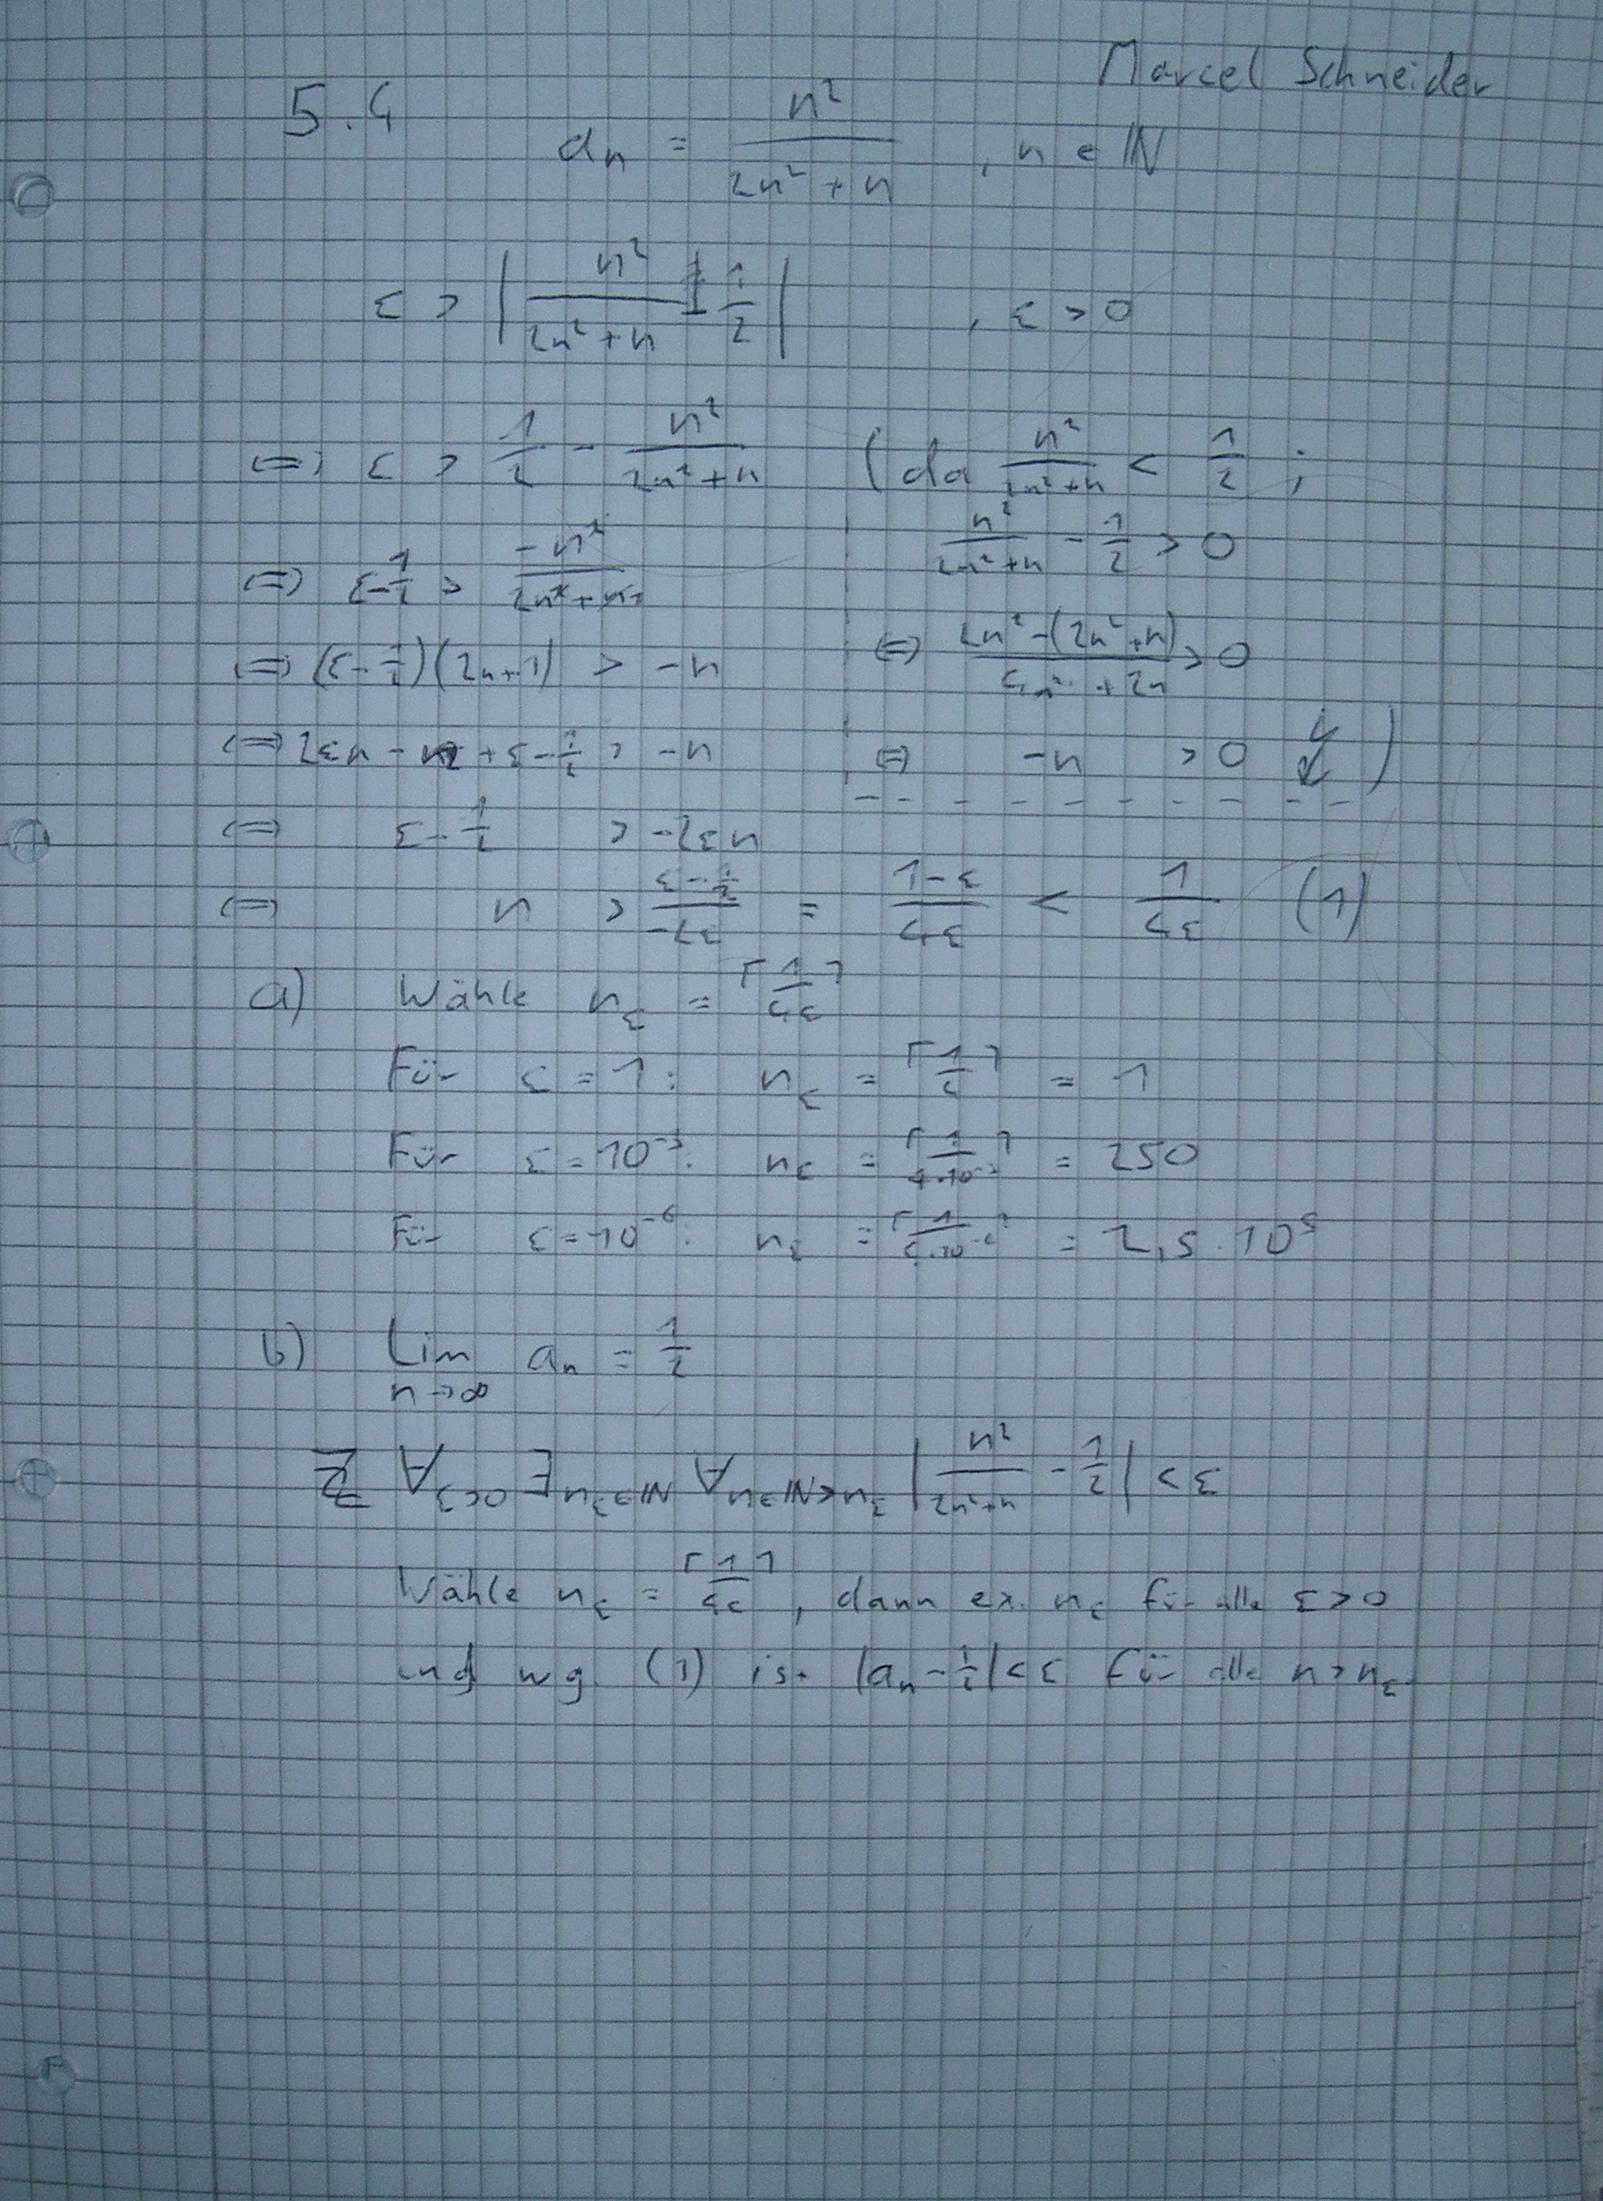 Marcel Schneider
5.4 aₙ = n²/(2n²+n) , n ∈ ℕ
ε > |n²/(2n²+n) - 1/2| , ε > 0
⇔ ε > 1/2 - n²/(2n²+n) (da n²/(2n²+n) < 1/2 ;
n²/(2n²+n) - 1/2 > 0
⇔ ε-1/2 > -n²/(2n²+n)
⇔ (2n²-(2n²+n))/(4n²+2n) > 0
⇔ (ε-1/2)(2n+1) > -n
⇔ -n > 0 ↯)
⇔ 2εn - n + ε - 1/2 > -n
⇔ ε - 1/2 > -2εn
⇔ n > (ε-1/2)/(-2ε) = (1-ε)/(4ε) < 1/(4ε) (1)
a) Wähle n_ε = ⌈1/(4ε)⌉
Für ε = 1: n_ε = ⌈1/4⌉ = 1
Für ε = 10⁻³: n_ε = ⌈1/(4·10⁻³)⌉ = 250
Für ε = 10⁻⁶: n_ε = ⌈1/(4·10⁻⁶)⌉ = 2,5 · 10⁵
b) lim n→∞ aₙ = 1/2
Z ∀ε>0 ∃n_ε∈ℕ ∀n∈ℕ>n_ε |n²/(2n²+n) - 1/2| < ε
Wähle n_ε = ⌈1/(4ε)⌉, dann ex. n_ε für alle ε > 0
und wg. (1) ist |aₙ - 1/2| < ε für alle n > n_ε.